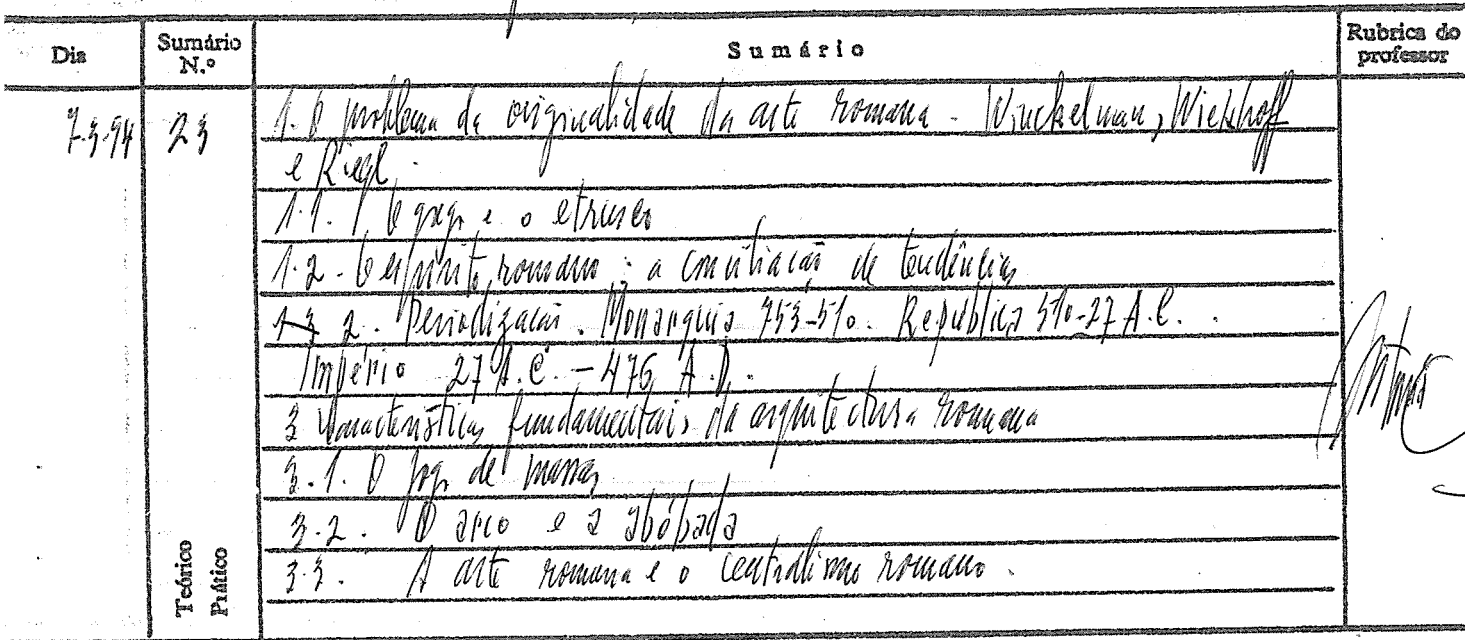 Dia Sumário N.º Sumário Rubrica do professor
7-3-94 23 1. O problema da originalidade da arte romana - Winckelman, Wickhoff
e Riegl.
1.1. O grego e o etrusco
1.2. O espírito romano: a conciliação de tendências
2. Periodização. Monarquia 753-510. República 510-27 A.C..
Império 27 A.C. - 476 A.D.
3 Características fundamentais da arquitectura romana
3.1. O jogo de massas
3.2. O arco e a abóbada
3.3. A arte romana e o centralismo romano.
Teórico
Prático